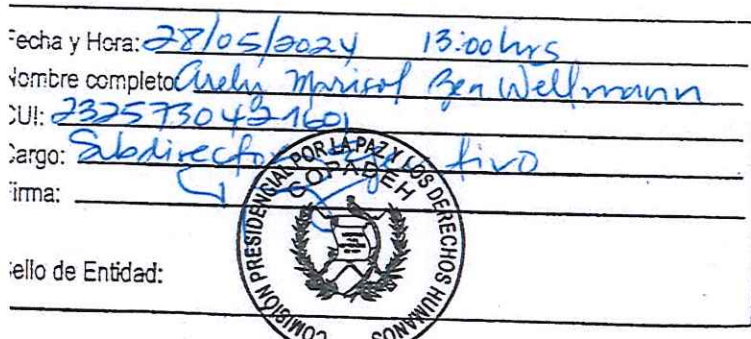 Fecha y Hora: 28/05/2024 13:00 hrs
Nombre completo Arely Marisol Ben Wellmann
CUI: 2325730421601
Cargo: Subdirector tivo
Firma:
Sello de Entidad:
COMISIÓN PRESIDENCIAL POR LA PAZ Y LOS DERECHOS HUMANOS
COPADEH